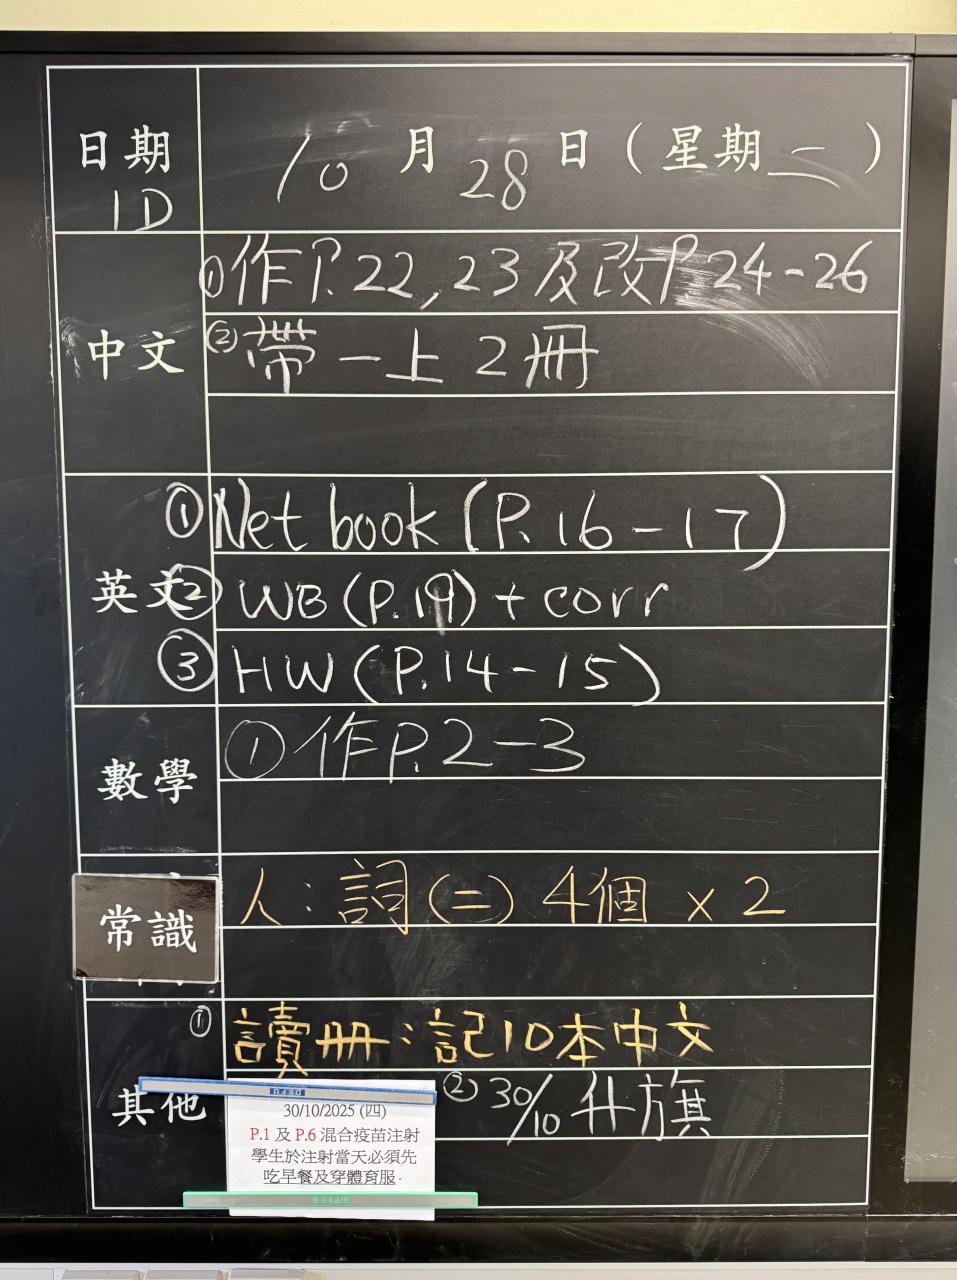 日期 10月28日(星期二)
1D
中文
①作P.22,23及改P.24-26
②帶一上2冊
英文
①Net book (P.16-17)
②WB (P.19) + corr
③HW (P.14-15)
數學
①作P.2-3
常識
人:詞(二) 4個 x 2
其他
①讀冊:記10本中文
②30/10 升旗
30/10/2025 (四)
P.1 及 P.6 混合疫苗注射
學生於注射當天必須先
吃早餐及穿體育服。